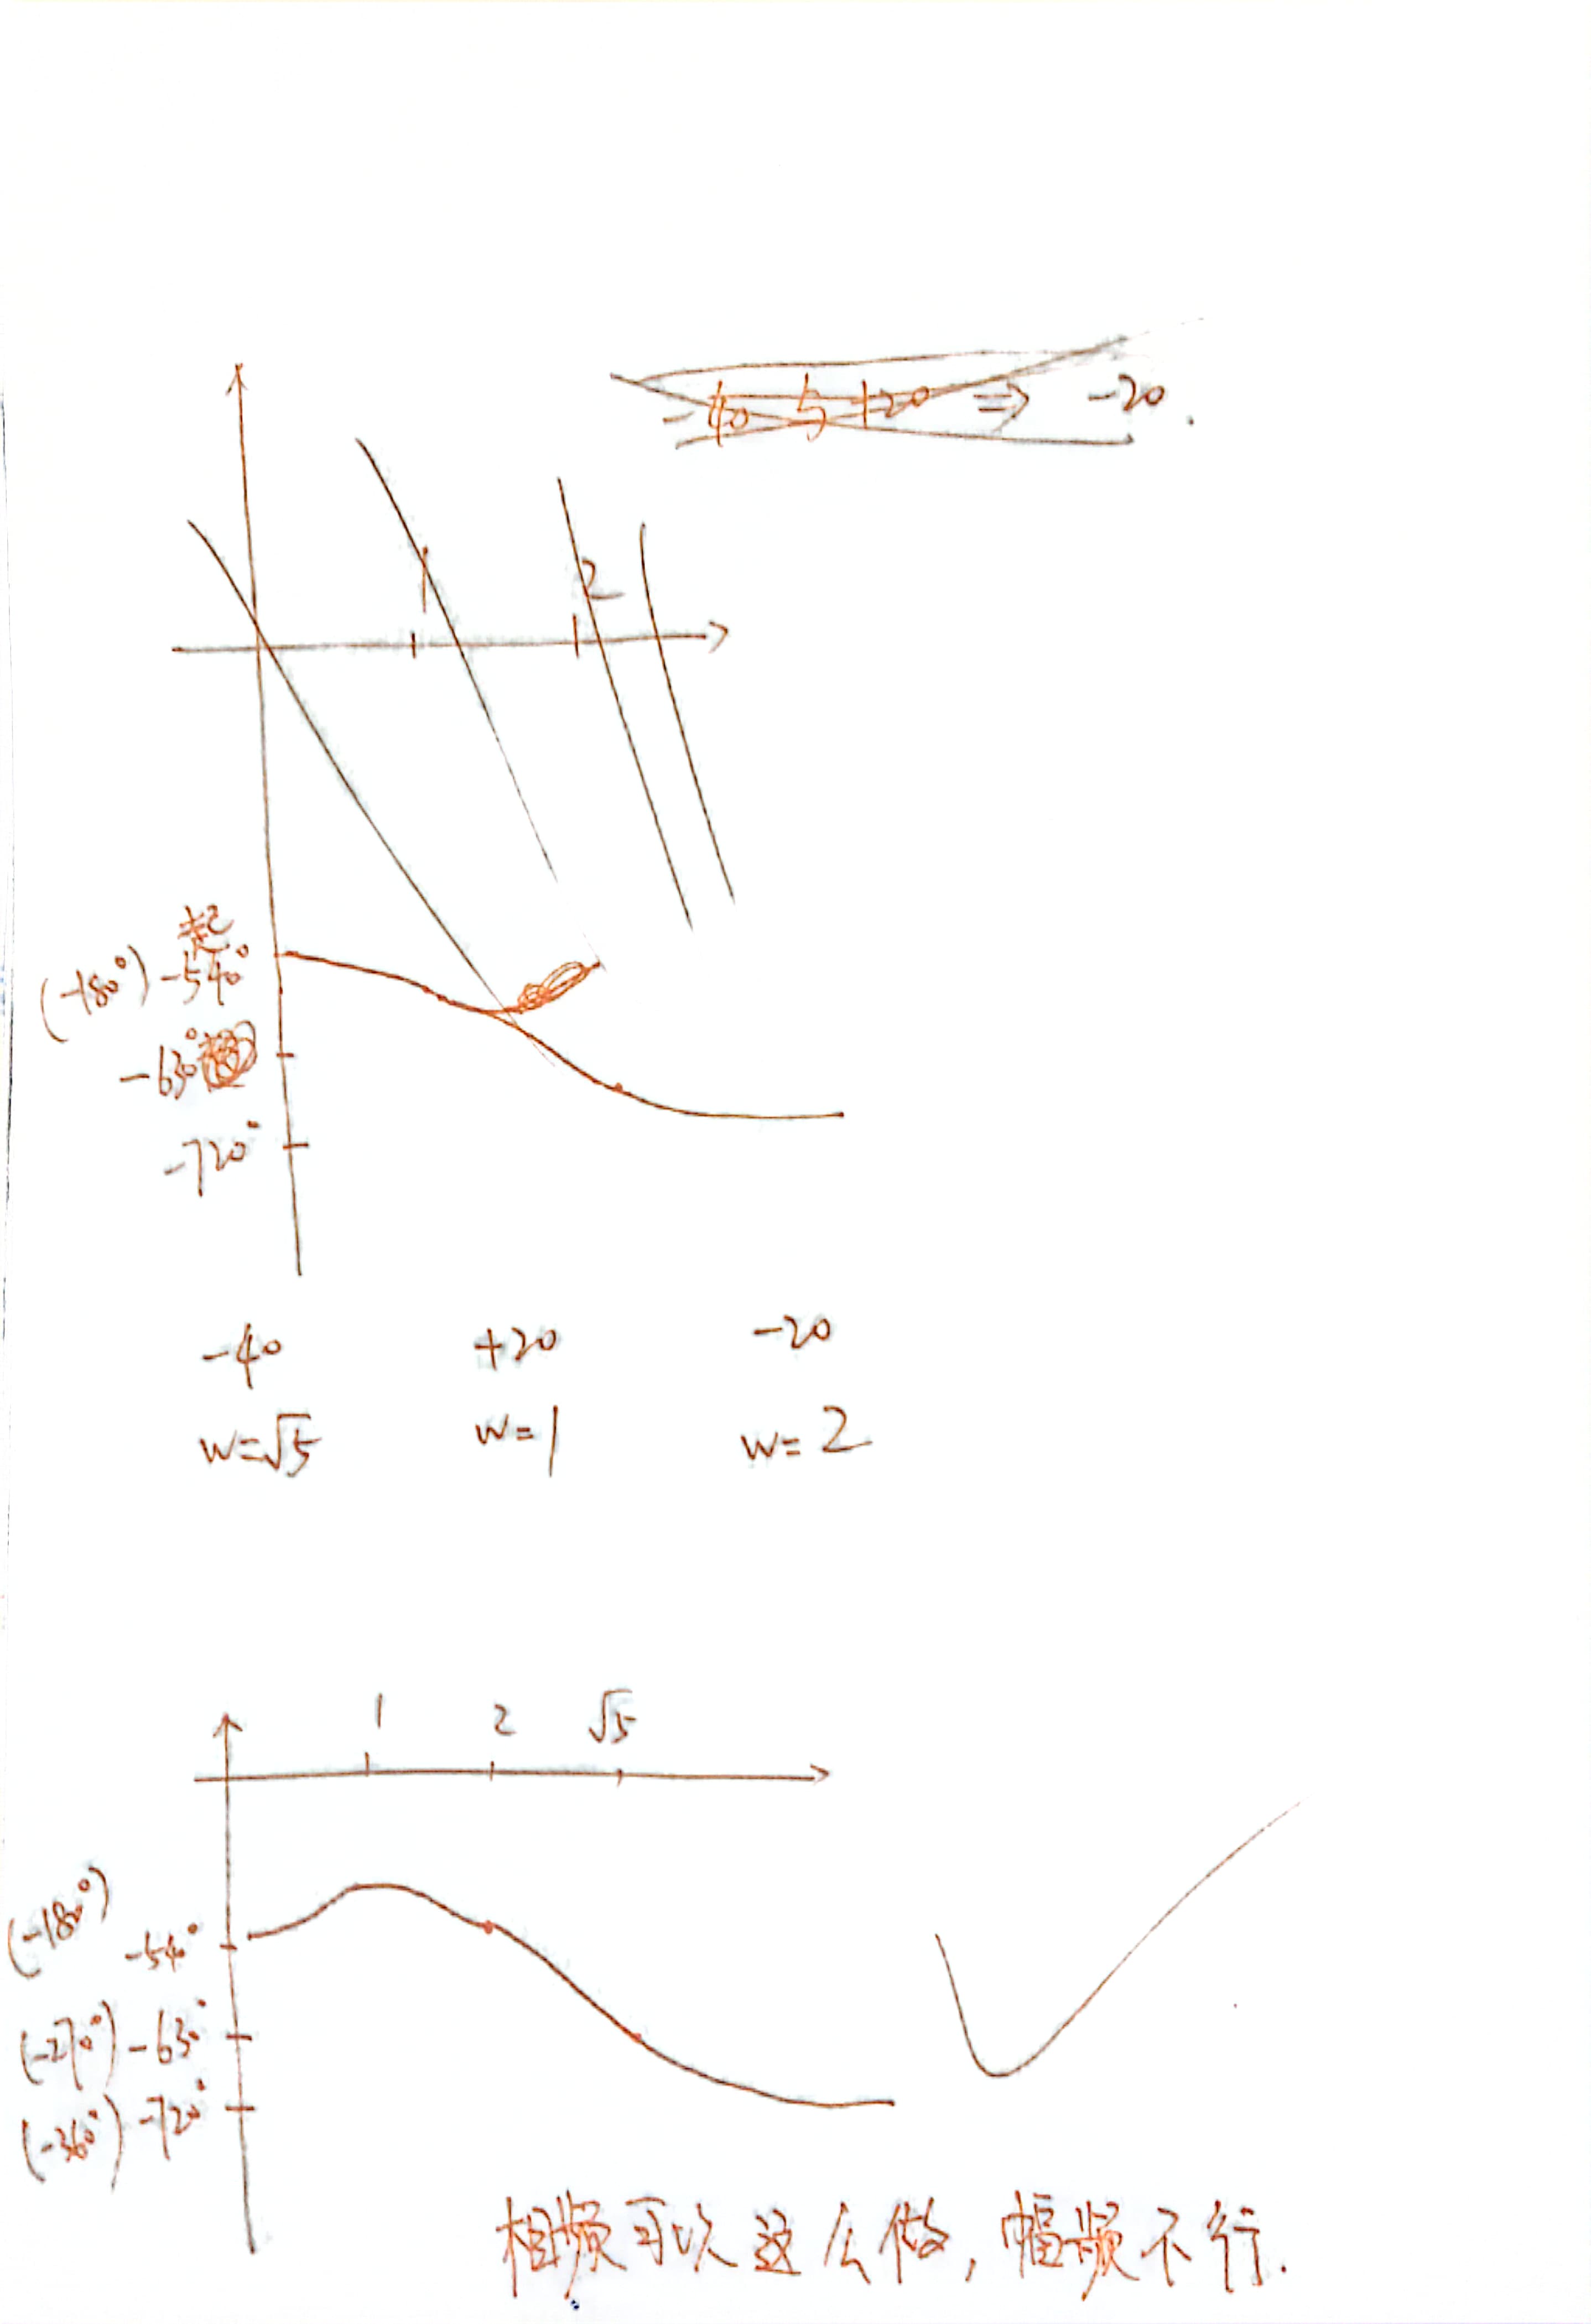 -40 与 +20 => -20.
1
2
起
(-180°) -540°
-630°
-720°
-40 +20 -20
w=√5 w=1 w=2
1 2 √5
(-180°) -540°
(-270°) -630°
(-360°) -720°
相频可以这么做,幅频不行.